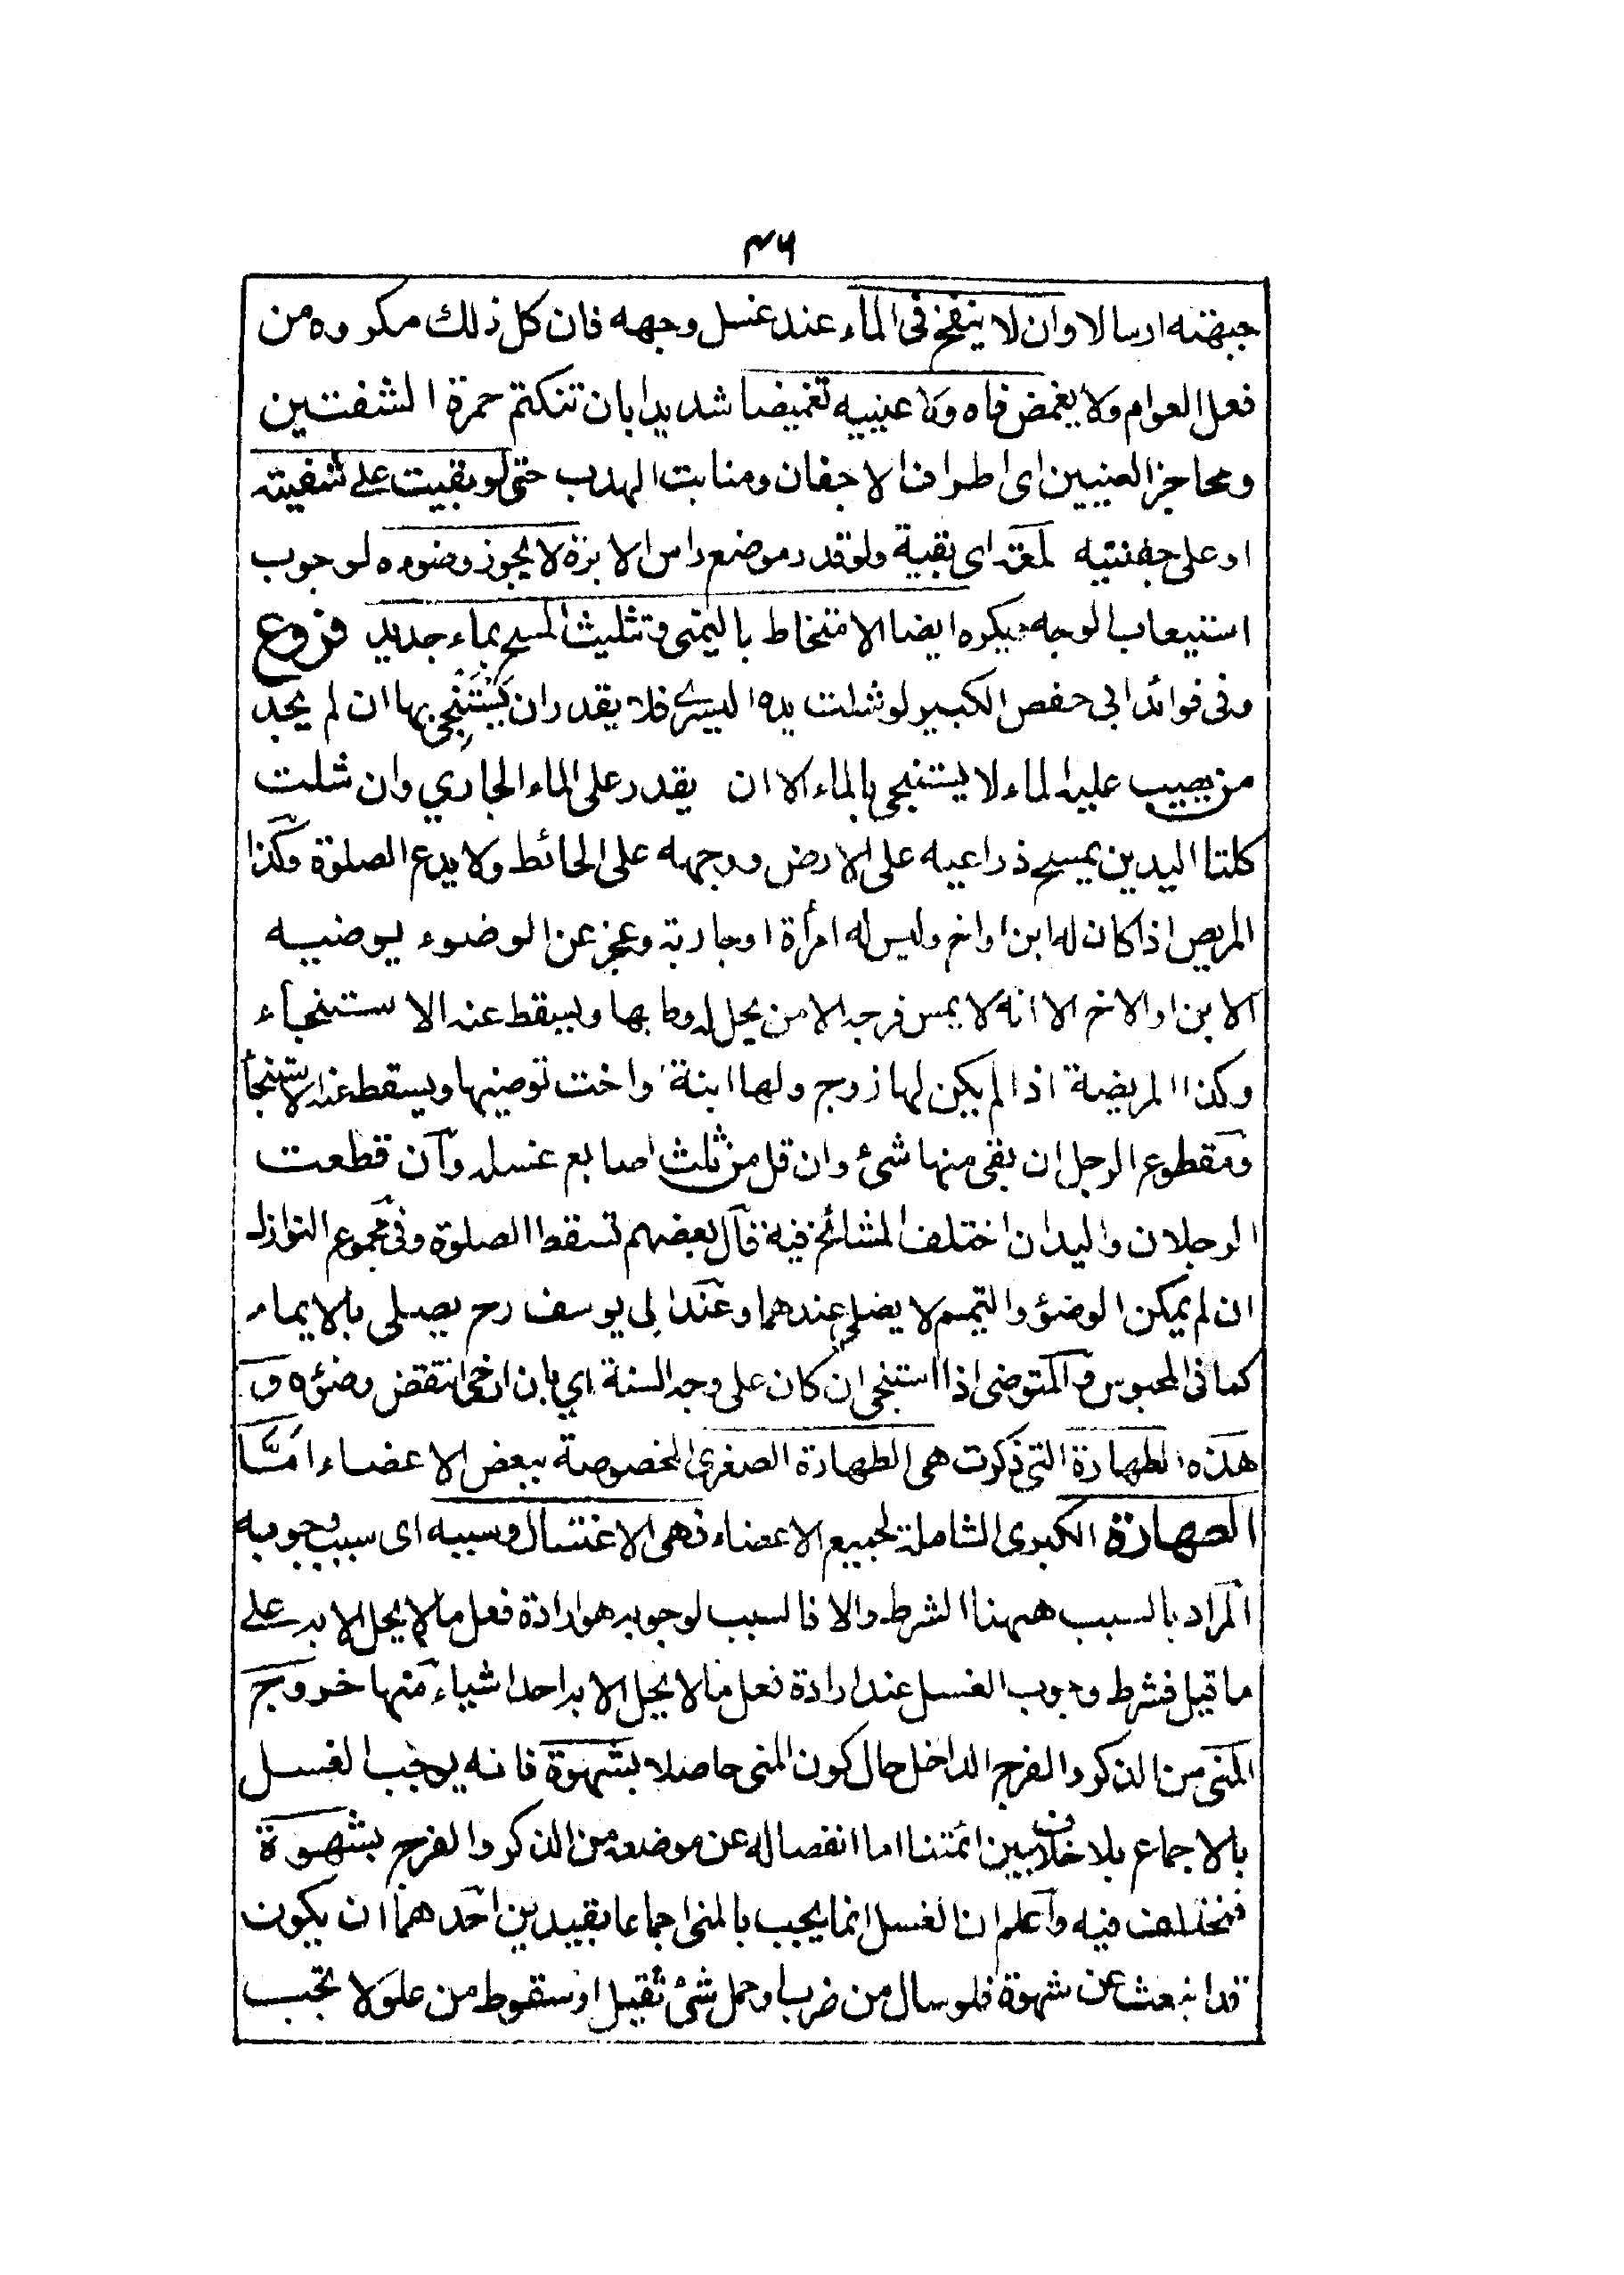 ٤٦
جبهته ارسالا وان لا ينفخ فى الماء عند غسل وجهه فان كل ذلك مكروه من
فعل العوام ولا يغمض فاه ولا عينيه تغميضا شديدا بان تنكتم حمرة الشفتين
ومحاجز العينين اى اطراف الاجفان ومنابت الهدب حتى لو بقيت على شفيته
او على جفنتيه لمعة اى بقية ولو قدر موضع راس الابرة لا يجوز وضوءه لوجوب
استيعاب الوجه ويكره ايضا الامتخاط باليمنى وتثليث المسح بماء جديد فروع
وفى فوائد ابى حفص الكبير لو شلت يده اليسرى فلا يقدر ان يستنجى بها ان لم يجد
من يصيب عليه الماء لا يستنجى بالماء الا ان يقدر على الماء الجاري وان شلت
كلتا اليدين يمسح ذراعيه على الارض ووجهه على الحائط ولا يدع الصلوة وكذا
المريض اذا كان له ابن او اخ وليس له امرأة او جارية وعجز عن الوضوء يوضيه
الابن او الاخ الا انه لا يمس فرجه الا من يحل له وطابها ويسقط عنه الاستنجاء
وكذا المريضة اذا لم يكن لها زوج ولها ابنة واخت توضيها ويسقط عنه الاستنجأ
ومقطوع الرجل ان بقى منها شئ وان قل من ثلث اصابع غسله وان قطعت
الرجلان واليدان اختلف المشائخ فيه قال بعضهم تسقط الصلوة وفى مجموع النوازل
ان لم يمكن الوضؤ والتيمم لا يصلي عندهما وعند ابى يوسف رح يصلى بالايماء
كما فى المحبوس والمتوضى اذا استنجى ان كان على وجه السنة اي بان ارخى انتقض وضئه و
هذه الطهارة التى ذكرت هى الطهارة الصغرى المخصوصة ببعض الاعضاء امّا
الطهارة الكبرى الشاملة لجميع الاعضاء فهى الاغتسال وسببه اى سبب وجوبه
المراد بالسبب ههنا الشرط والا فالسبب لوجوبه هو ارادة فعل ما لا يحل الا به على
ما قيل فشرط وجوب الغسل عند ارادة فعل ما لا يحل الا به احد اشياء منها خروج
المنى من الذكر والفرج الداخل حال كون المنى حاصلا بشهوة فانه يوجب الغسل
بالاجماع بلا خلاف بين ائمتنا اما انفصاله عن موضعه من الذكر والفرج بشهوة
فمختلف فيه واعلم ان الغسل انما يجب بالمنى اجماعا بقيدين احدهما ان يكون
قد انبعث عن شهوة فلو سال من ضرب او حمل شئ ثقيل او سقوط من علو لا تجب